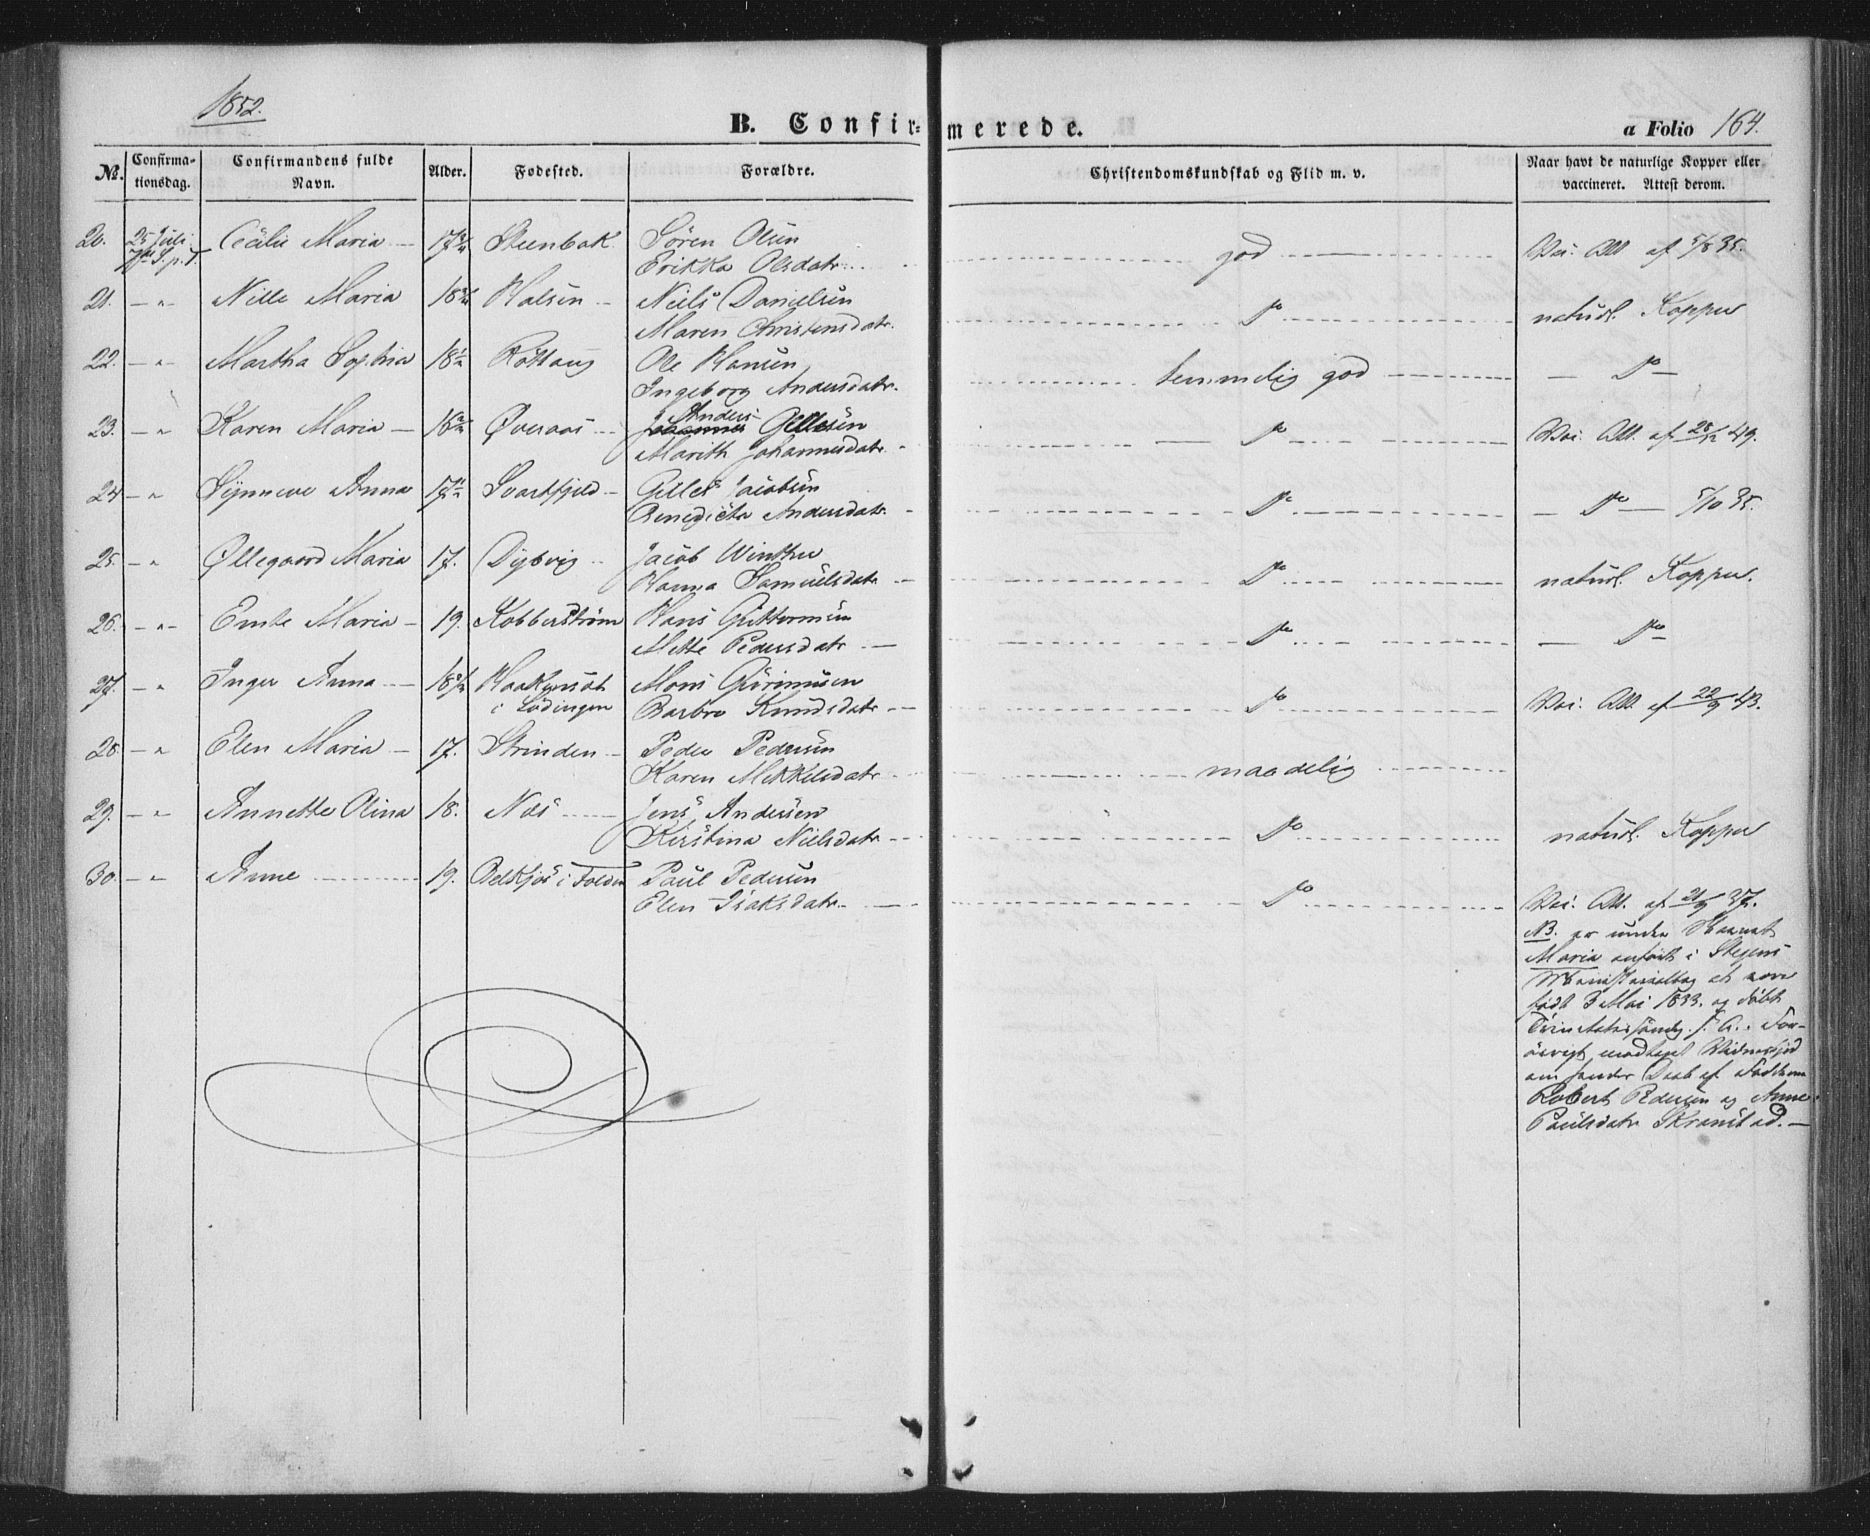 1852.
B. Confir=merede.
a Folio 164.
№.
Confirma-
tionsdag.
Confirmandens fulde
Navn.
Alder.
Fødested.
Forældre.
Christendomskundskab og Flid m. v.
Naar havt de naturlige Kopper eller
vaccineret. Attest derom.
20. 25 Juli Cecilie Maria Steenbak Sören Olsen
7de S. p. T. Erikka Olsdatr. god Vac. Att. af 5/8 35.
21. - " Nille Maria Halsen Niels Danielsen
Maren Christensdatr. Do naturl. Kopper
22. - " Martha Sophia 18 Röttang Ole Hansen
Ingeborg Andersdatr. temmelig god - Do -
Anders
23. - " Karen Maria - Øveraas Johannes Gillesen
Marith Johannesdatr. Do Vac. Att. af 28/12 49.
24 - " Synneve Anna Svartfjeld - Gilles Jacobsen
Benedicta Andersdatr. Do - Do - 5/10 35.
25. - " Øllegaard Maria 17. Dybvig Jacob Winther
Hanna Samuelsdatr. Do naturl. Kopper.
26. - " - Ente Maria - 19. Kobberström Hans Guttormsen
Mette Pedersdatr. - Do - Do -
27. - " Inger Anna Haakensöt Mons
i Lødingen Barbro Knudsdatr. Do Vac. Att. af 22/9 43.
28. - " Elen Maria - 17. Strinden - Peder Pedersen
Karen Mekkelsdatr. maadelig
29. - " Annette Olina 18. Næs Jens Andersen
Kirstina Nielsdatr. Do naturl. Kopper
30. - " Anne 19. i Folden Paul Pedersen
Elen Isaksdatr. Do Vac. Att. af 21/9 37.
NB. er under Navnet
Maria anført i Stegens
Ministerialbog at være
født 3 Mai 1833. og døbt
s. A. For-
øvrigt modtaget Vidnesbyrd
om hendes Daab af Fadderne
Robert Pedersen og Anne
Paulsdatr Skranstad. -